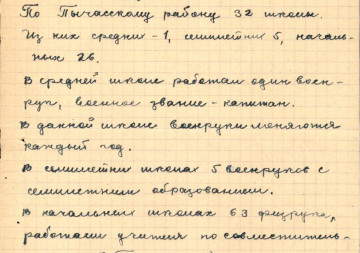 По Тычасскому району 32 школы.
Из них средних - 1, семилетних 5, началь-
ных 26.
В средней школе работал один воен-
рук, военное звание - капитан.
В данной школе военруки меняются
каждый год.
В семилетних школах 5 военруков с
семилетним образованием.
В начальных школах 63 физрука,
работают учителя по совместитель-